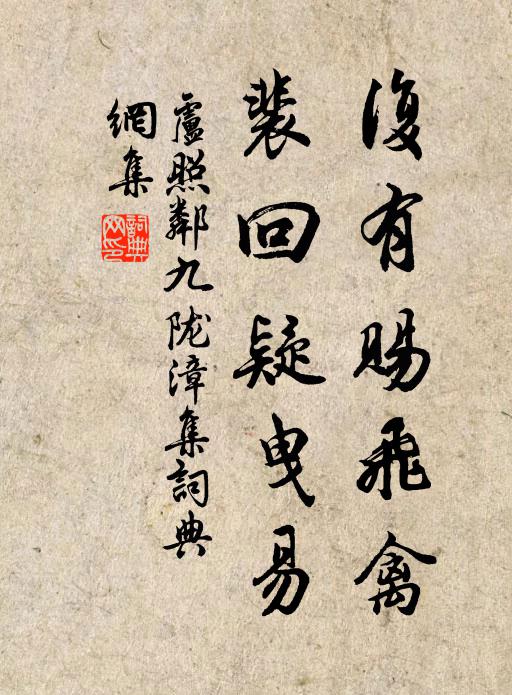 復有賜飛禽
裴回疑曳舄
盧照鄰九陇漳集詞典
網集
詞典
网印